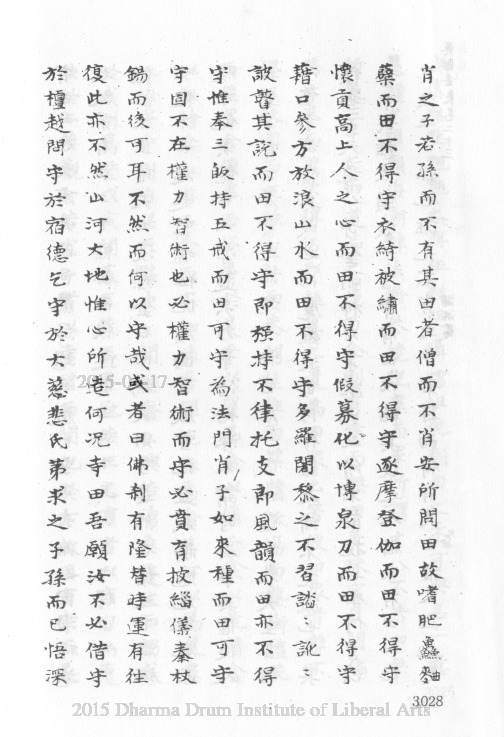 肖之子若孫而不有其田者僧而不肖安所問田故嗜肥鱻麯
蘖而田不得守衣綺被繡而田不得守逐摩登伽而田不得守
懷貢高上人之心而田不得守假募化以博泉刀而田不得守
藉口參方放浪山水而田不得守多羅闍黎之不習謚〻訛〻
詖聲其說而田不得守即強持不律托支郎風韻而田亦不得
守惟奉三皈持五戒而田可守為法門肖子如來種而田可守
守固不在權力智術也必權力智術而守必賁育披緇儀秦杖
錫而後可耳不然而何以守哉或者曰佛剎有隆替時運有往
復此亦不然山河大地惟心所造何況寺田吾願汝不必借守
於檀越問守於宿德乞守於大慈悲氏第求之子孫而已悟深
3028
2015-04-17
2015 Dharma Drum Institute of Liberal Arts